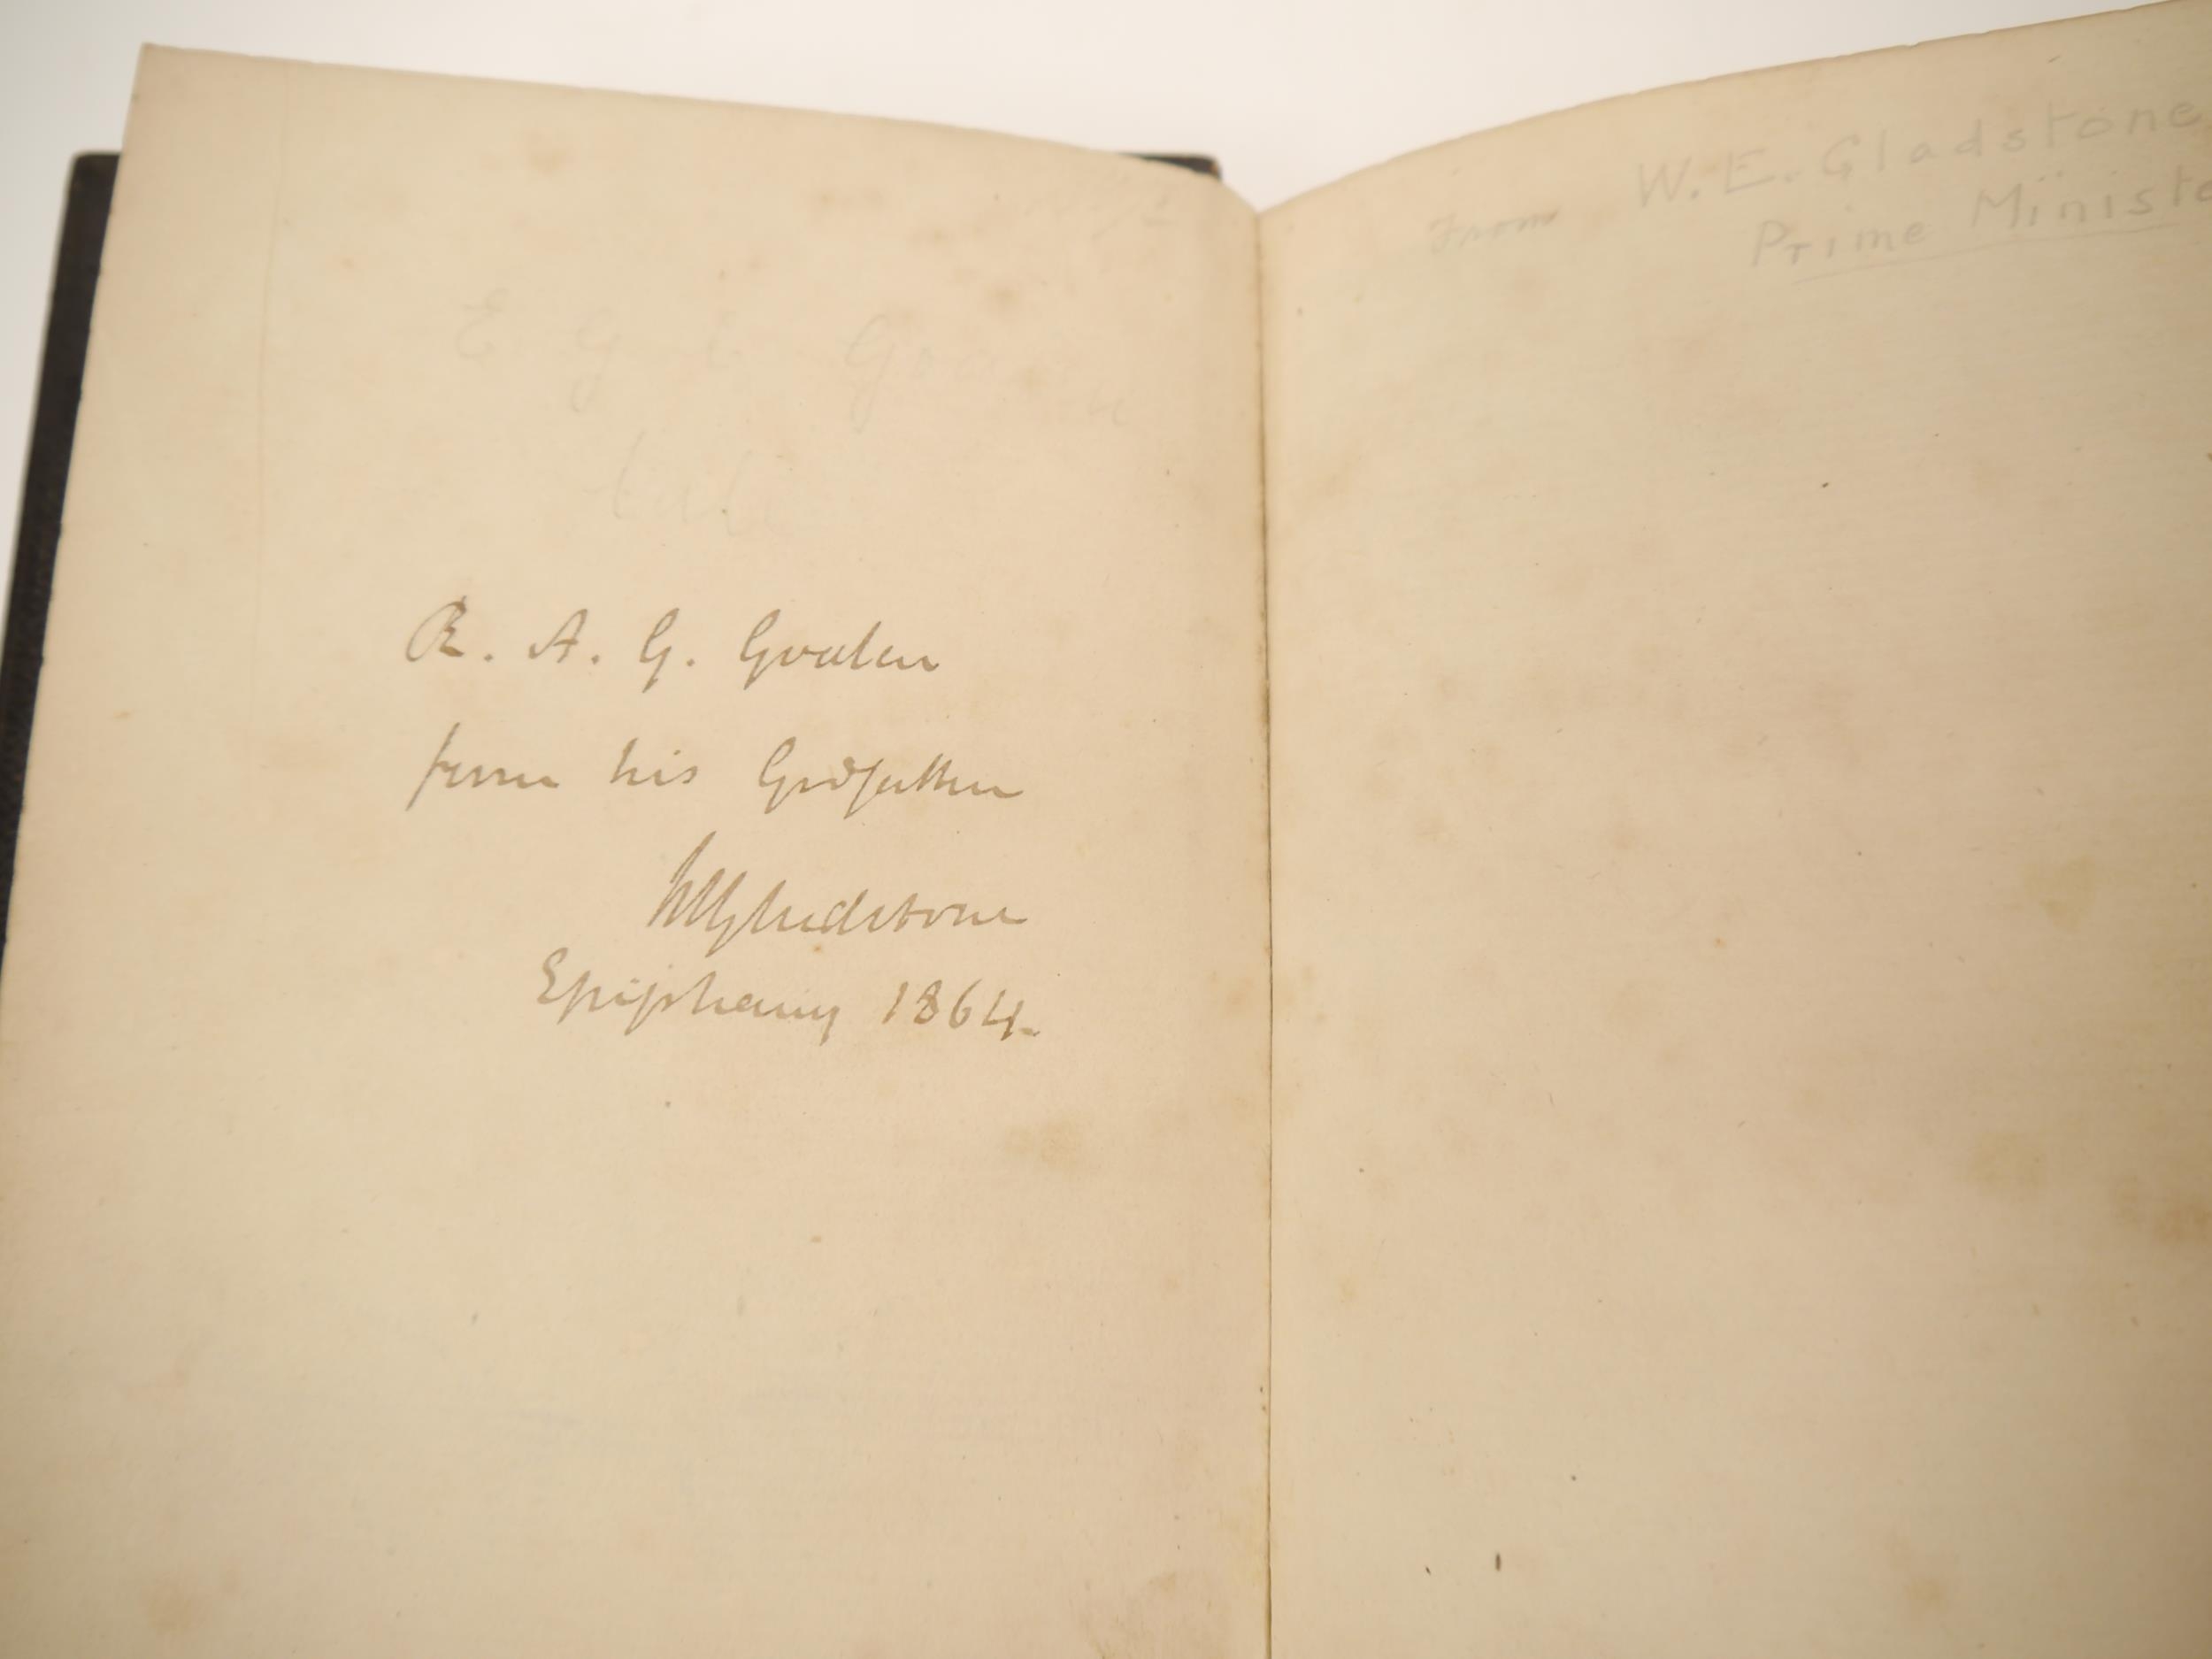 E. G.
R. A. G. Gooden
from his Godfather
WEGladstone
Epiphany 1864.
From W. E. Gladstone
Prime Ministe